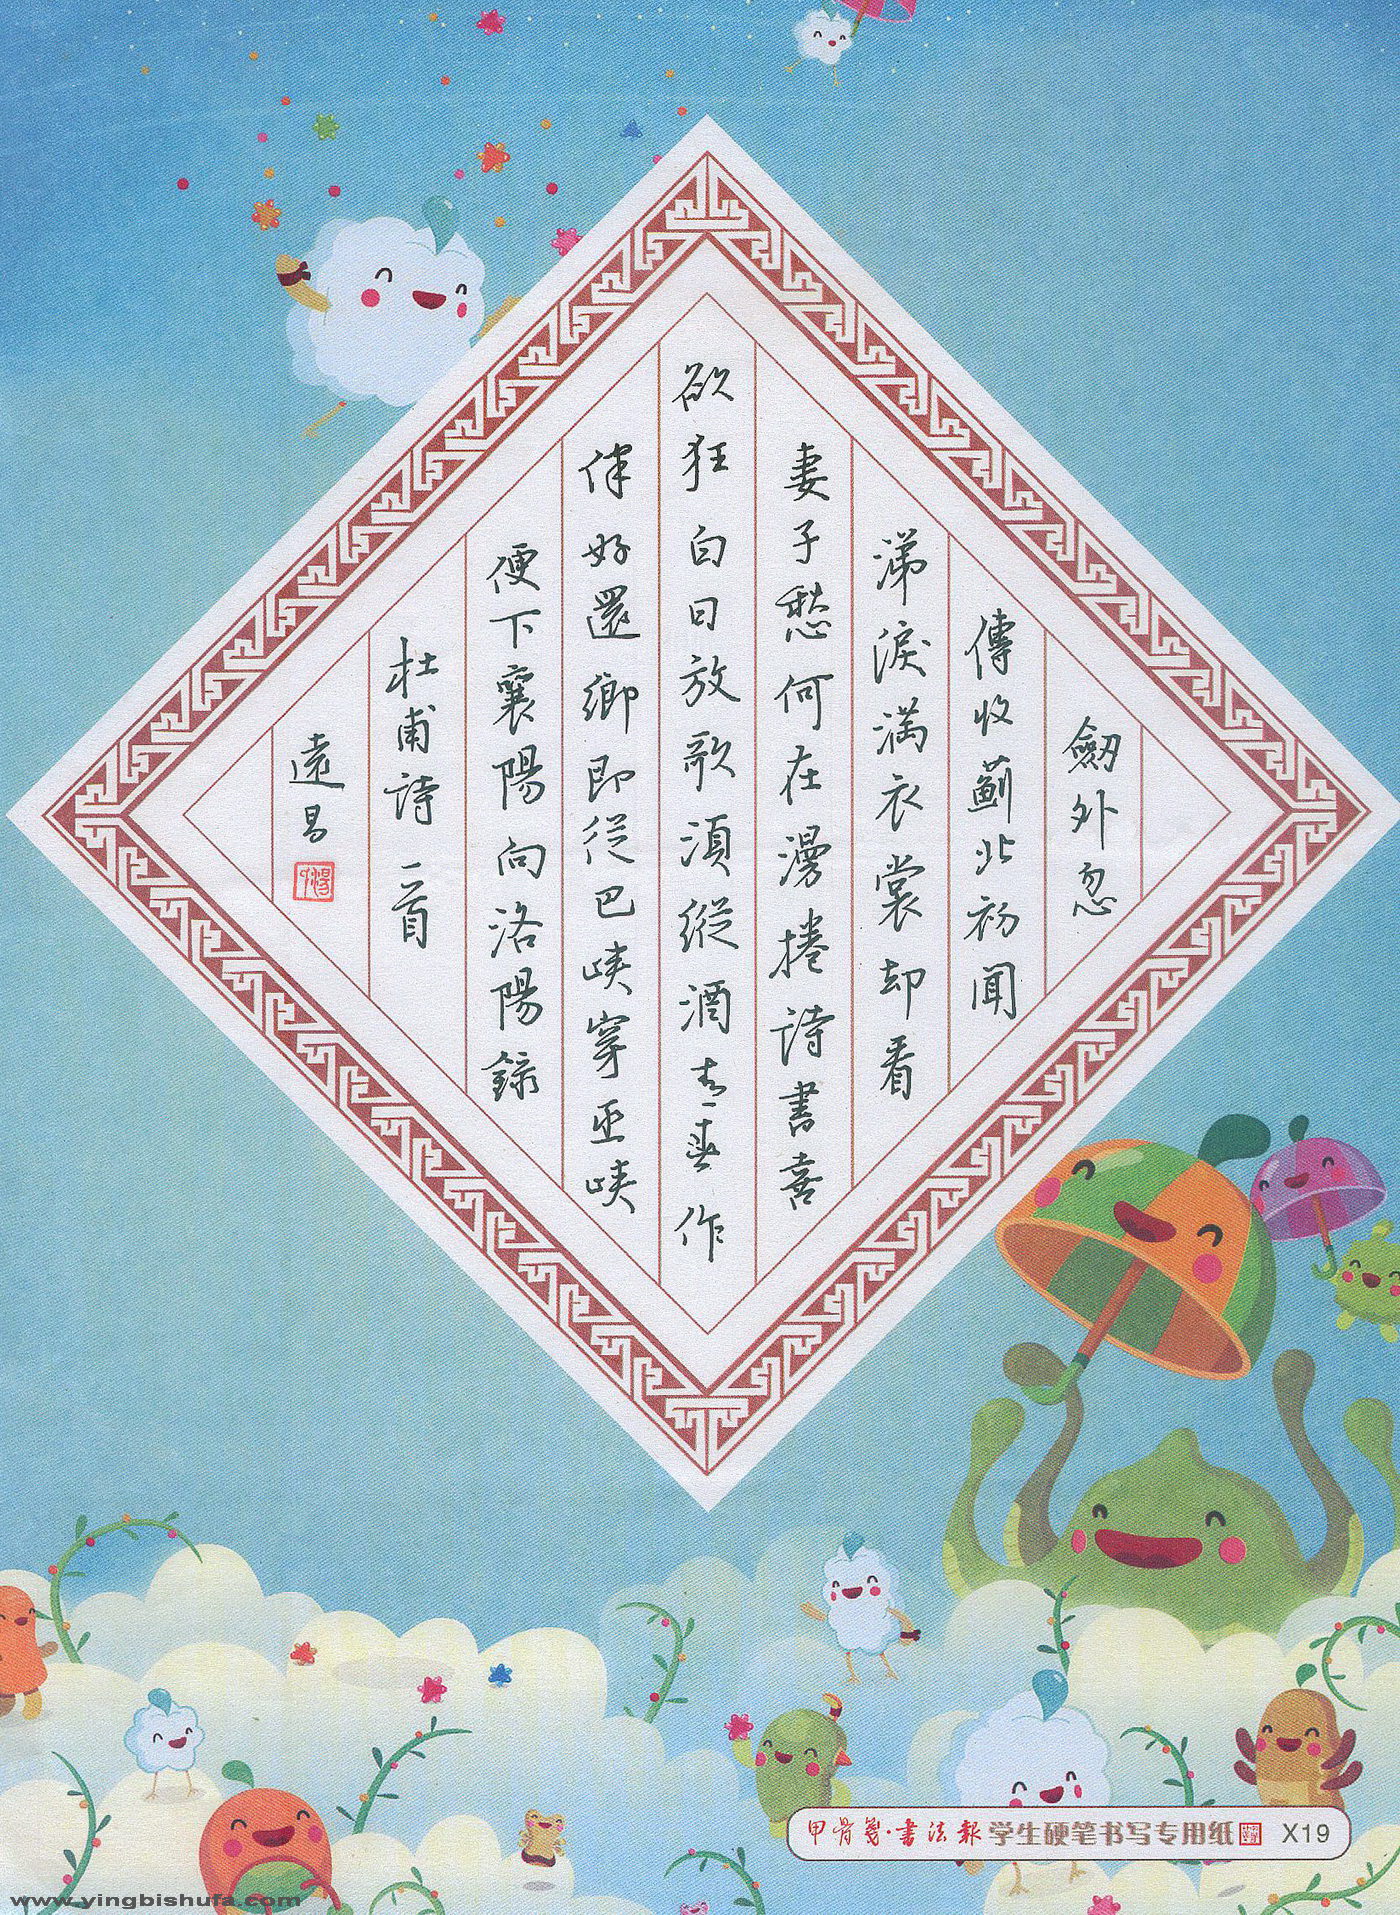 劒外忽
傳收薊北初聞
涕淚满衣裳却看
妻子愁何在漫捲詩書喜
欲狂白日放歌須縱酒青春作
伴好還鄉即從巴峽穿巫峽
便下襄陽向洛陽錄
杜甫詩一首
遠
甲骨箋·書法報 学生硬笔书写专用纸 X19
www.yingbishufa.com